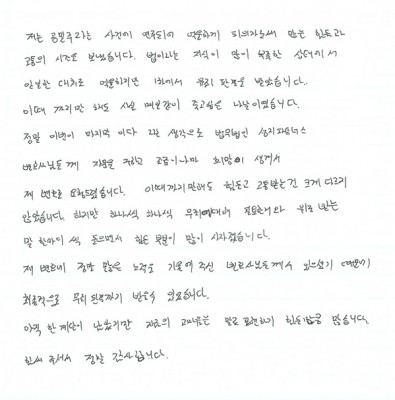 저는 공밀주라는 사건에 연루되어 억울하게 피의자로써 많은 힘들고
고통의 시간을 보냈습니다. 법이라는 지식이 많이 부족한 상태에서
안일한 대처로 억울하지만 1심에서 유죄 판결을 받았습니다.
이때 까지만 해도 사실 매일같이 죽고싶은 나날이였습니다.
정말 이번이 마지막 이다 라는 생각으로 법무법인 파트너스
변호사님들께 자문을 구하고 조금이나마 희망이 생겨서
제 변호를 요청드렸습니다. 이때까지만해도 힘들고 고통받는건 크게 다르지
않았습니다. 하지만 하나씩 하나씩 위로 받는
말 한마디 씩 들으면서 힘든 부분이 많이 사라졌습니다.
제 변호에 정말 많은 노력을 기울여 주신 변호사님들께서 있으셨기 때문에
최종적으로 무죄 판결까지 받을수 있었습니다.
아직 한 계단이 남았지만 지금의 고마움은 말로 표현하기 힘들만큼 많습니다.
힘써 주셔서 정말 감사합니다.